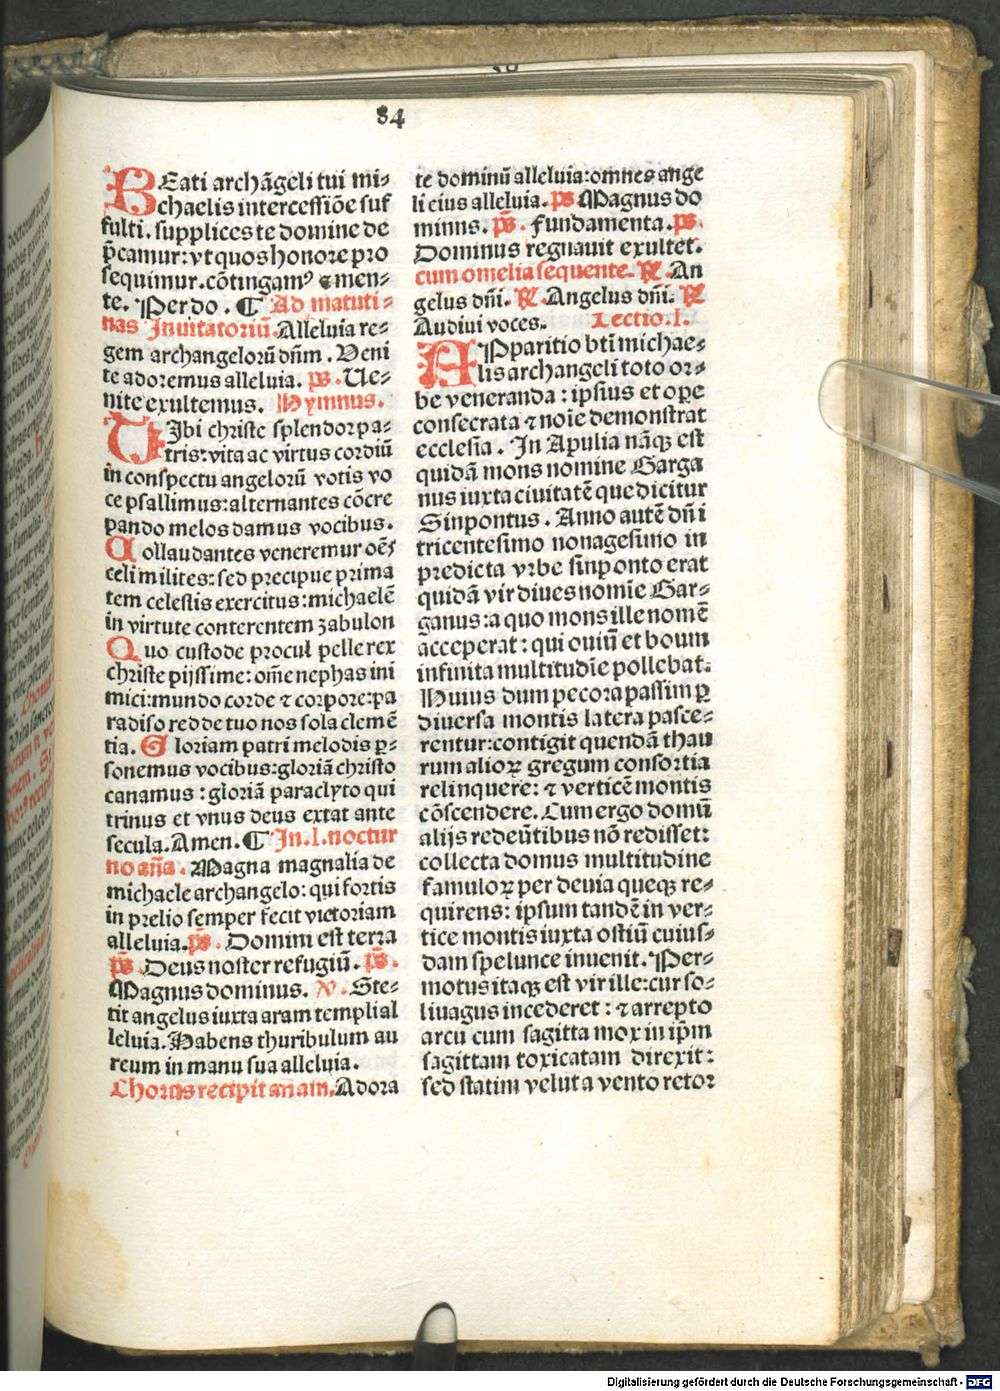 84
BEati archãgeli tui mi⸗
chaelis intercessiõe suf
fulti. supplices te domine de
p̃camur: vt quos honore pro
sequimur. cõtingamꝰ ⁊ men⸗
te. Per do. ¶ Ad matuti⸗
nas Inuitatoriũ. Alleluia re⸗
gem archangelorũ dñm. Veni
te adoremus alleluia. ps. Ue⸗
nite exultemus. Hymnus.
TIbi christe splendor pa⸗
tris: vita ac virtus cordiũ
in conspectu angelorũ votis vo
ce psallimus: alternantes cõcre
pando melos damus vocibus.
Collaudantes veneremur oẽs
celi milites: sed precipue prima
tem celestis exercitus: michaelẽ
in virtute conterentem zabulon
Quo custode procul pelle rex
christe pijssime: om̃e nephas ini
mici: mundo corde ⁊ corpore: pa
radiso redde tuo nos sola clemẽ
tia. Gloriam patri melodis ꝑ⸗
sonemus vocibus: gloriã christo
canamus: gloriã paraclyto qui
trinus et vnus deus extat ante
secula. Amen. ¶ In .I. noctur
no añа. Magna magnalia de
michaele archangelo: qui fortis
in prelio semper fecit victoriam
alleluia. ps̃. Domini est terra
ps̃. Deus noster refugiũ. ps̃.
Magnus dominus. ℣. Ste⸗
tit angelus iuxta aram templi al
leluia. Habens thuribulum au
reum in manu sua alleluia.
Chorus recipit añam. Adora
te dominũ alleluia: omnes ange
li eius alleluia. ps Magnus do
minus. ps̃. Fundamenta. ps.
Dominus regnauit exultet.
cum omelia sequente. ℟. An
gelus dñi. ℟. Angelus dñi. ℟
Audiui voces. Lectio .I.
APparitio bti michae⸗
lis archangeli toto or⸗
be veneranda: ipsius et ope
consecrata ⁊ noĩe demonstrat
ecclesia. In Apulia nãqꝫ est
quidã mons nomine Garga
nus iuxta ciuitatẽ que dicitur
Sinpontus. Anno autẽ dñi
tricentesimo nonagesimo in
predicta vrbe sinponto erat
quidã vir diues nomie Gar⸗
ganus: a quo mons ille nomẽ
acceperat: qui ouiũ et boum
infinita multitudĩe pollebat.
Huius dum pecora passim ꝑ
diuersa montis latera pasce⸗
rentur: contigit quendã thau
rum alioꝝ gregum consortia
relinquere: ⁊ verticẽ montis
cõscendere. Cum ergo domũ
alijs redeũtibus nõ redisset:
collecta domus multitudine
famuloꝝ per deuia queqꝫ re⸗
quirens: ipsum tandẽ in ver⸗
tice montis iuxta ostiũ cuius⸗
dam spelunce inuenit. Per⸗
motus itaqꝫ est vir ille: cur so⸗
liuagus incederet: ⁊ arrepto
arcu cum sagitta mox in ip̃m
sagittam toxicatam direxit:
sed statim velut a vento retor
Digitalisierung gefördert durch die Deutsche Forschungsgemeinschaft - DFG